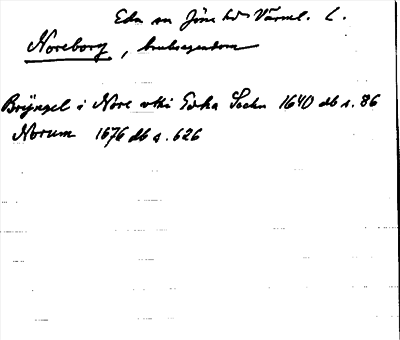 Eda sn Jösse hd Värml. L.
Noreborg, bruksegendom
Bryngel i Nore uthi Edha Sochn 1640 db s. 86
Norum 1676 db s. 626